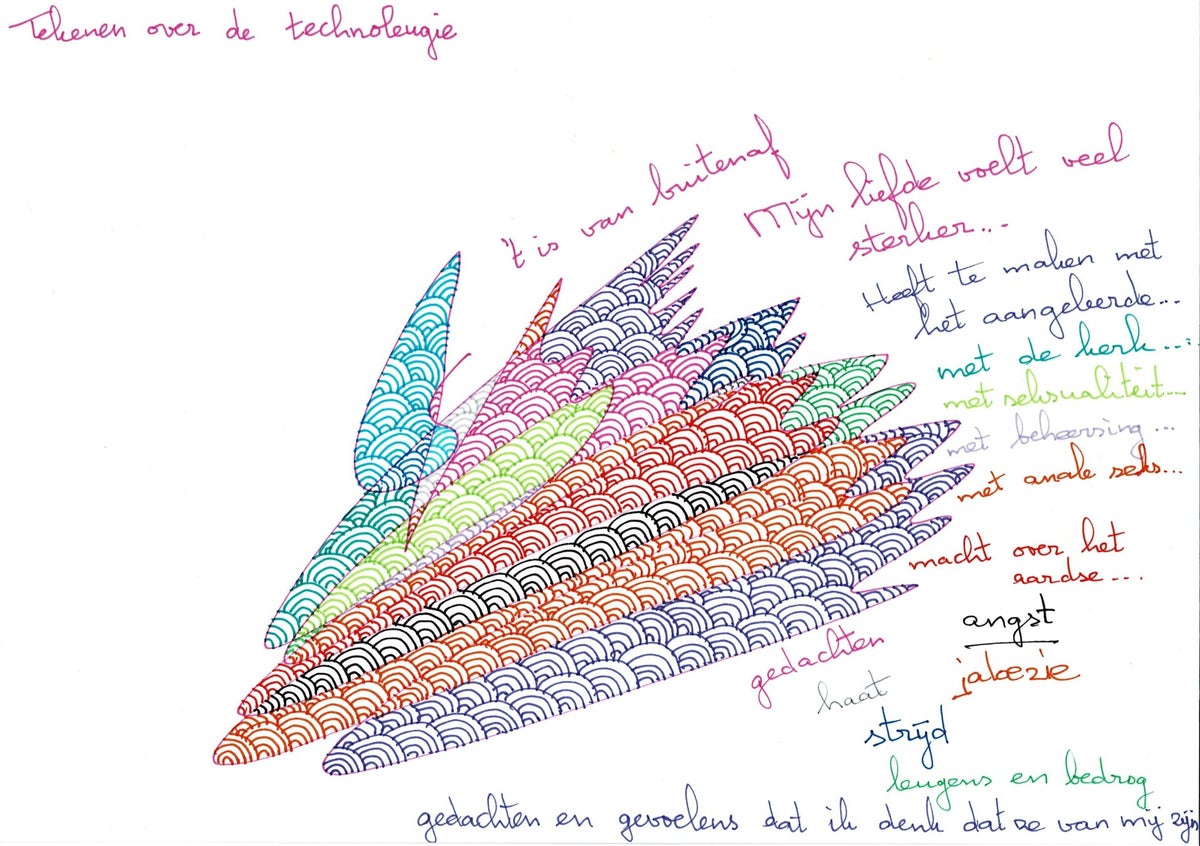 Tekenen over de technoleugie
't is van buitenaf
Mijn liefde voelt veel
sterker...
Heeft te maken met
het aangeleerde...
met de kerk...
met seksualiteit...
met beheersing...
met anale seks...
macht over het
aardse...
angst
jaloezie
gedachten
haat
strijd
leugens en bedrog
gedachten en gevoelens dat ik denk dat ze van mij zijn